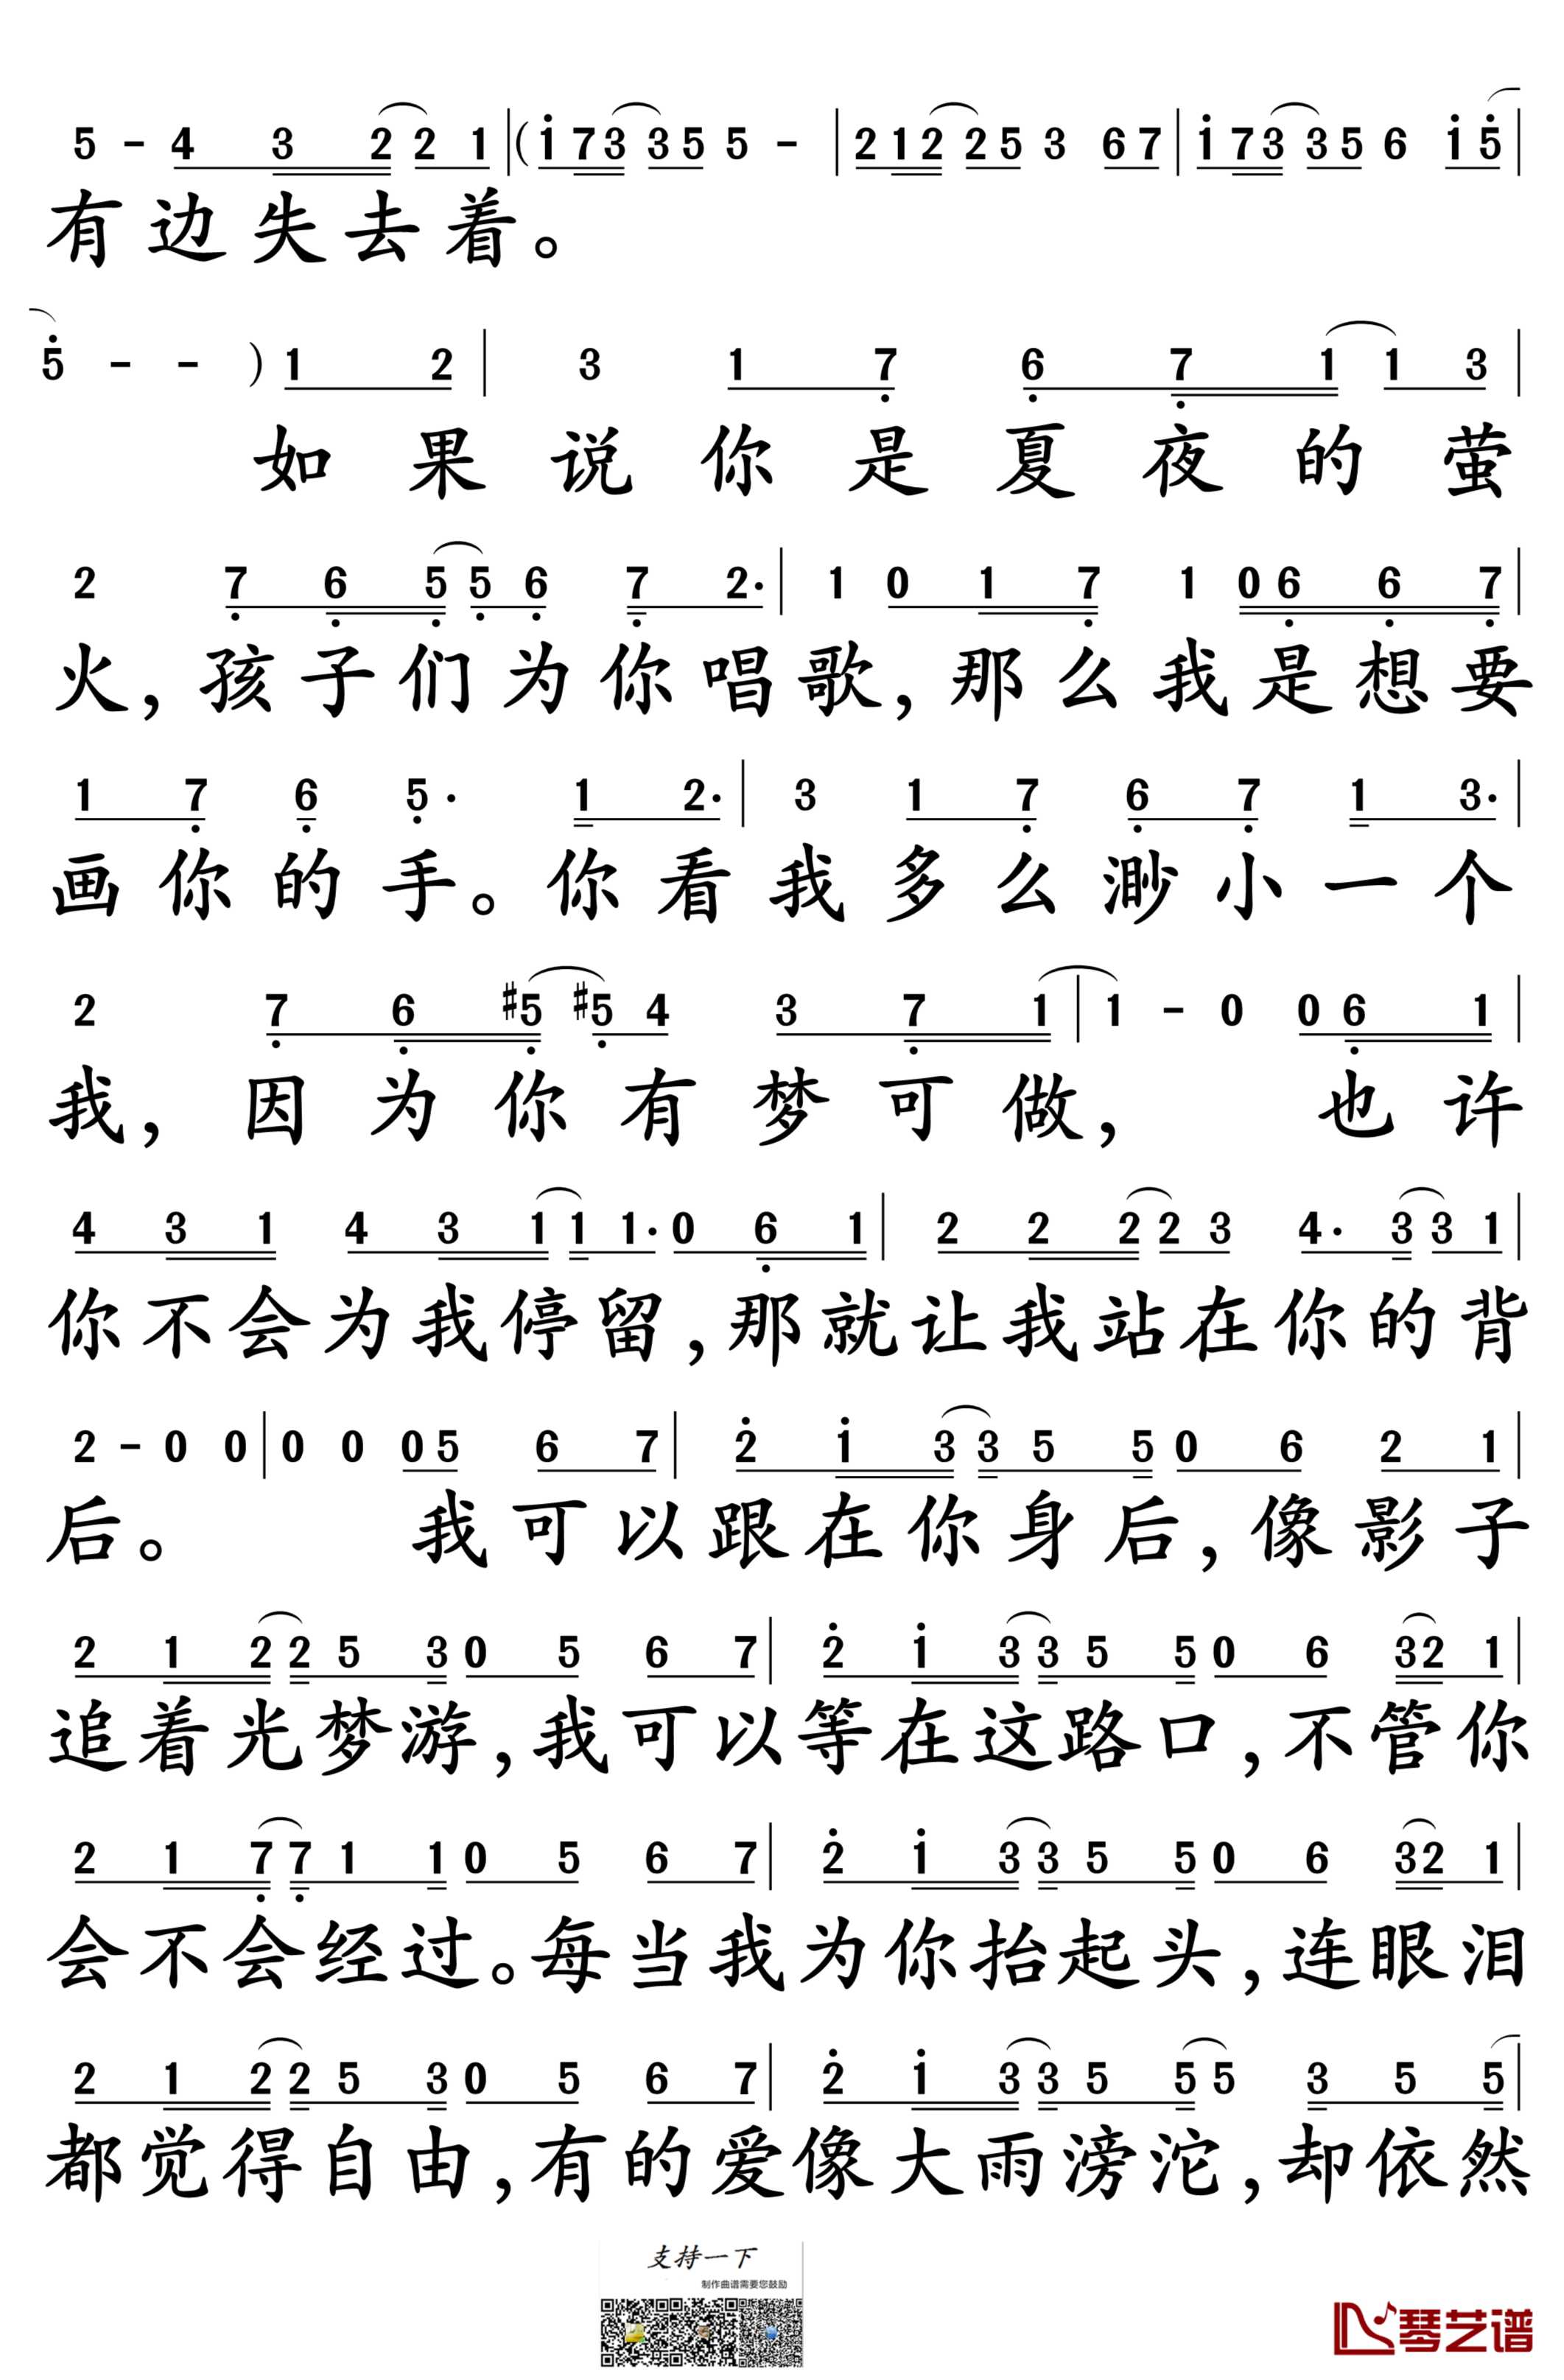 5 - 4 3 2 2 1 | ( 1 7 3 3 5 5 - | 2 1 2 2 5 3 6 7 | 1 7 3 3 5 6 1 5 |
有边失去着。
5 - - ) 1 2 | 3 1 7 6 7 1 1 3 |
如果说你是夏夜的萤
2 7 6 5 5 6 7 2· | 1 0 1 7 1 0 6 6 7 |
火,孩子们为你唱歌,那么我是想要
1 7 6 5· 1 2· | 3 1 7 6 7 1 3· |
画你的手。你看我多么渺小一个
2 7 6 #5 #5 4 3 7 1 | 1 - 0 0 6 1 |
我,因为你有梦可做,也许
4 3 1 4 3 1 1 1· 0 6 1 | 2 2 2 2 3 4· 3 3 1 |
你不会为我停留,那就让我站在你的背
2 - 0 0 | 0 0 0 5 6 7 | 2 1 3 3 5 5 0 6 2 1 |
后。我可以跟在你身后,像影子
2 1 2 2 5 3 0 5 6 7 | 2 1 3 3 5 5 0 6 3 2 1 |
追着光梦游,我可以等在这路口,不管你
2 1 7 7 1 1 0 5 6 7 | 2 1 3 3 5 5 0 6 3 2 1 |
会不会经过。每当我为你抬起头,连眼泪
2 1 2 2 5 3 0 5 6 7 | 2 1 3 3 5 5 5 3 5 5 |
都觉得自由,有的爱像大雨滂沱,却依然
支持一下
制作曲谱需要您鼓励
琴艺谱